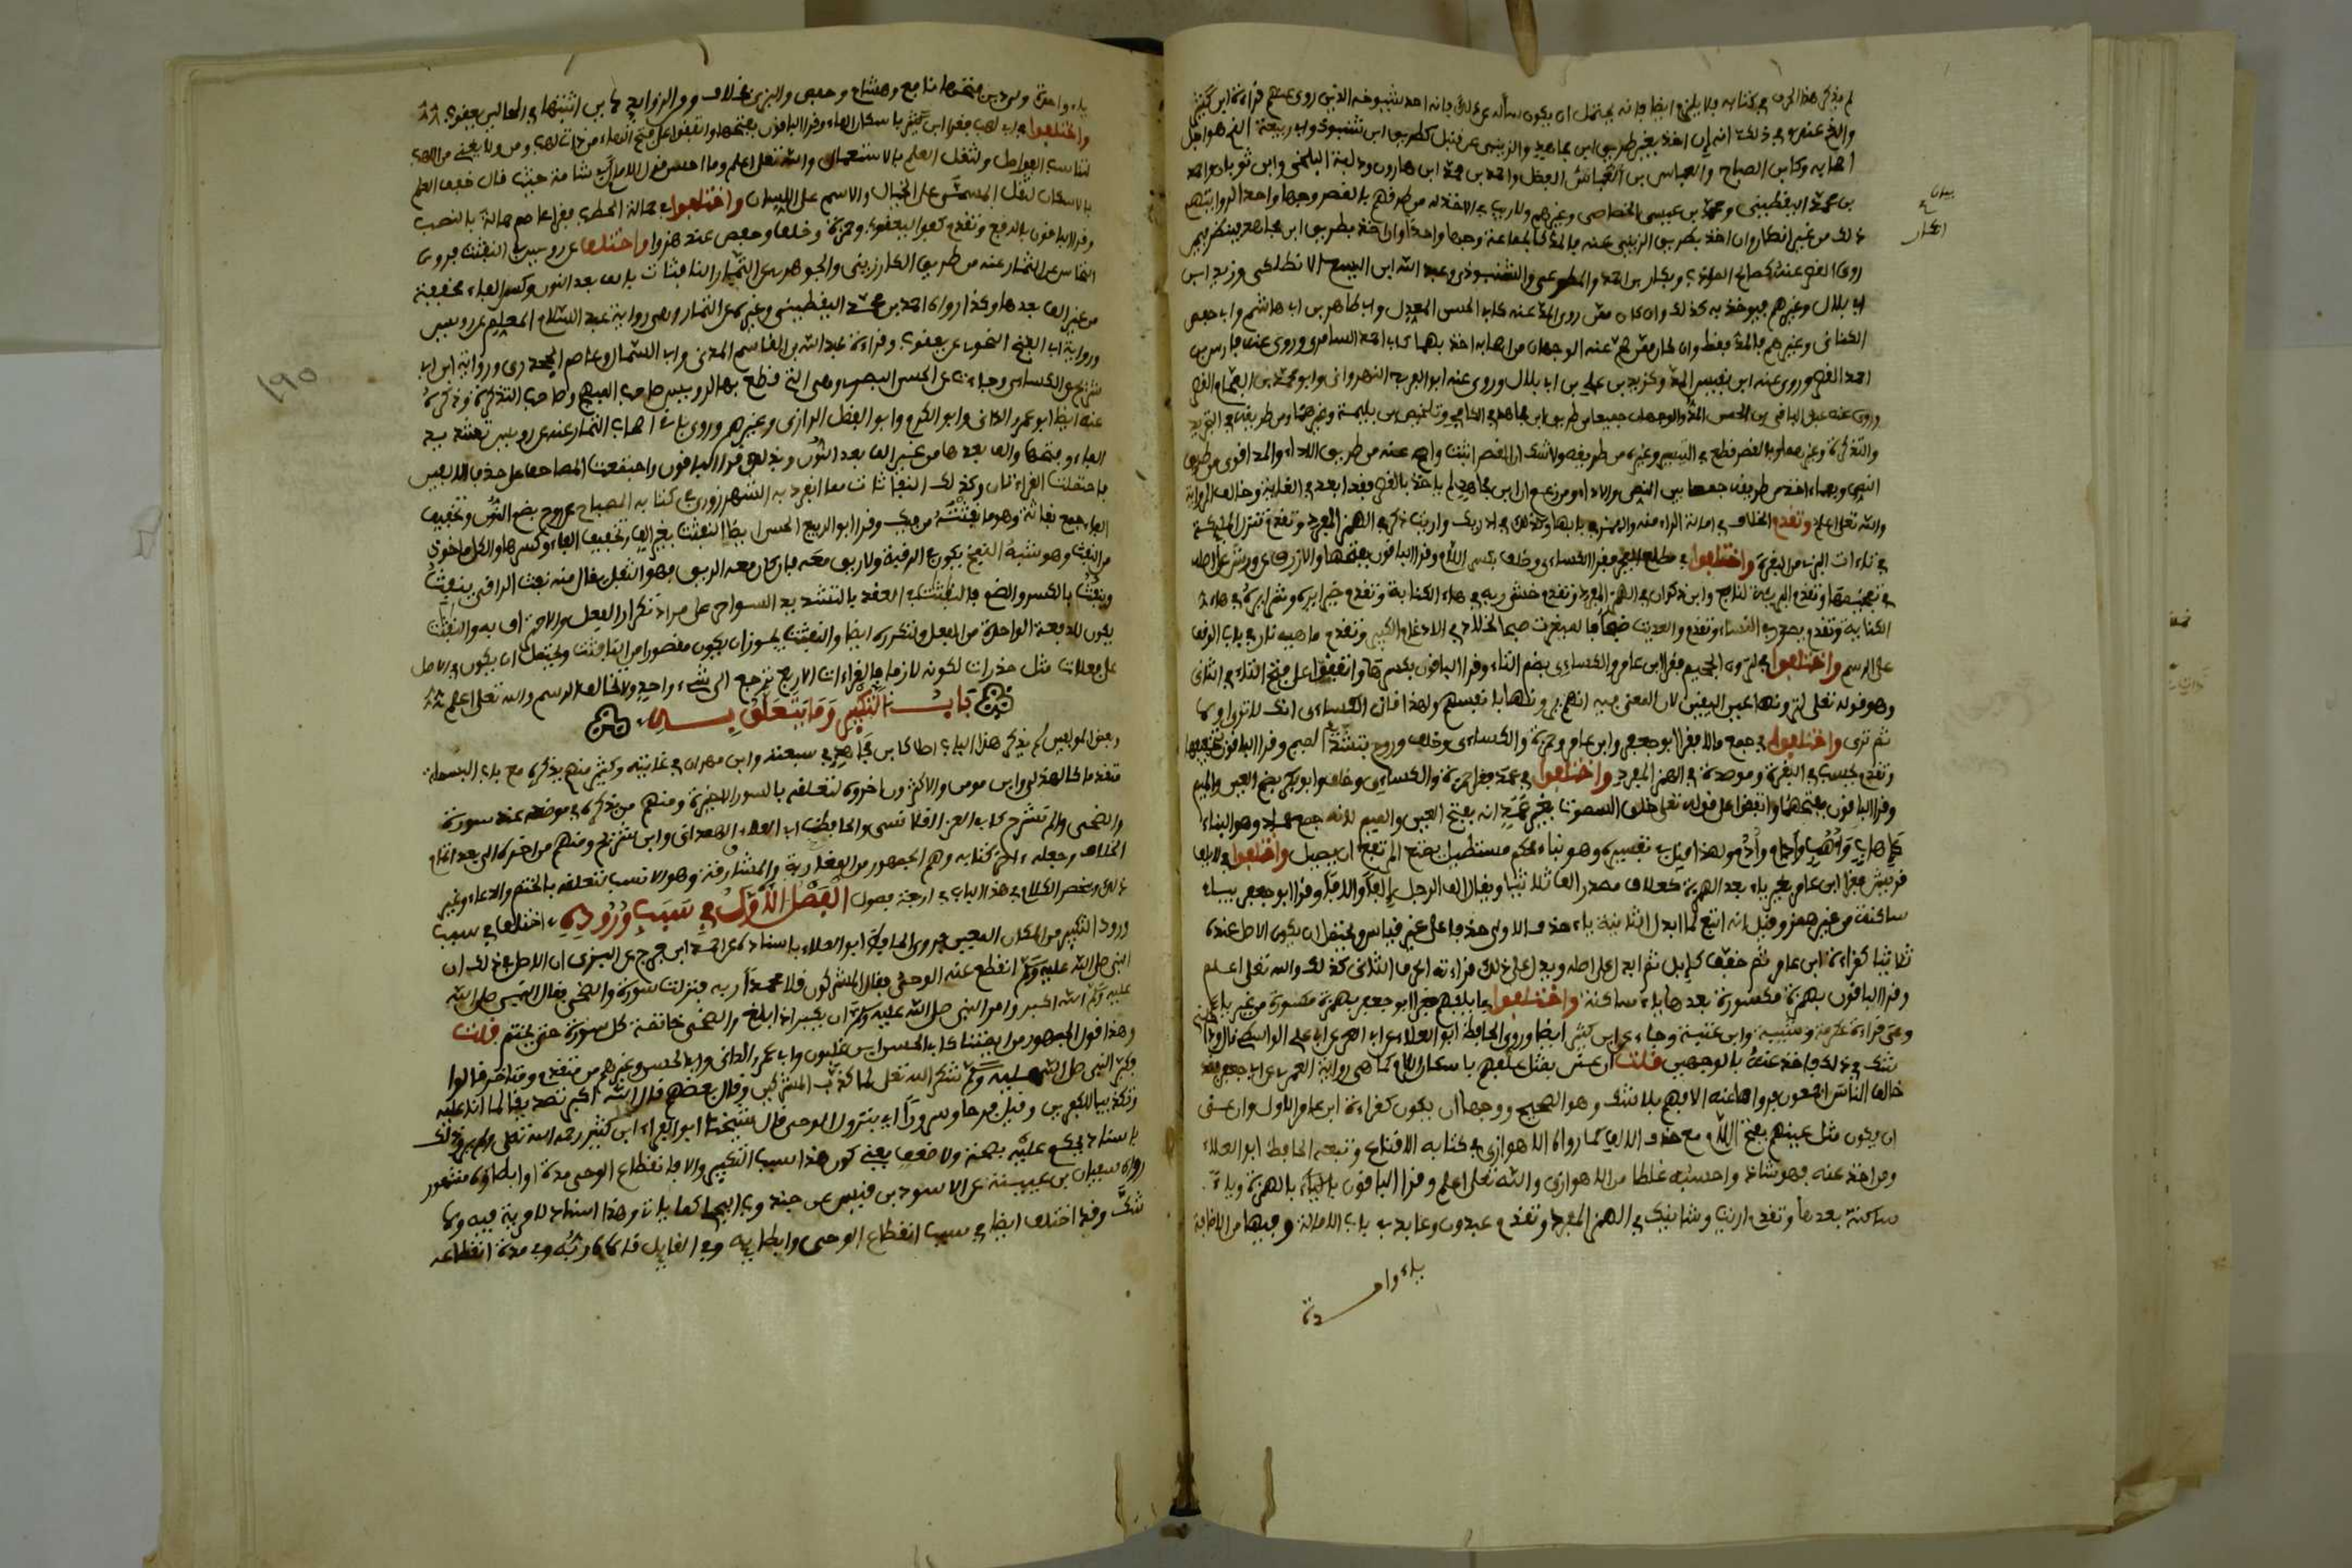 لم يذكر هذا الحرف في كتابه فلا يلزم ايضا فانه يحتمل ان يكون سأله عن ذلك فانه احد شيوخه الذين روى عنهم قراءة ابن كثير
والذي عندي في ذلك انه ان اخذ بغير طريق ابن مجاهد والزينبي عن قنبل كطريق ابن شنبوذ وابي ربيعة الذي هو اجل
اصحابه وكابن الصباح والعباس بن الفضل واحمد بن محمد ابن هارون ودلبة البلخي وابن ثوبان واحمد
بن محمد اليقطيني ومحمد بن عيسى الجصاصي وغيرهم فلا ريب في الاخذ له من طرقهم بالقصر وجها واحدا لروايتهم
بيان
انكار
ذلك من غير انكار وان اخذ بطريق الزينبي عنه فالمد كالجماعة وجها واحدا وان اخذ بطريق ابن مجاهد فينظر فيمن
روى القصر عنه كصالح المؤدب وبكار بن احمد والمطوعي والشنبوذي وعبد الله ابن اليسع الانطاكي وزيد ابن
ابي بلال وغيرهم فيؤخذ به كذلك وان كان ممن روى المد عنه كابي الحسن المعدل وابي طاهر بن ابي هاشم وابي حفص
الكتاني وغيرهم فالمد فقط وان كان ممن صح عنه الوجهان من اصحابه اخذ بهما كابي احمد السامري وروى عنه فارس بن
احمد القصر وروى عنه ابن نفيس المد وكزيد بن علي بن ابي بلال وروى عنه ابو الفرج النهرواني وابو محمد بن الفحام القصر
وروى عنه عبد الباقي بن الحسن المد والوجهان جميعا من طريق ابن مجاهد في الكافي وتلخيص ابن بليمة وغيرهما ومن طريقه في التجريد
والتذكرة وغيرهما وبالقصر قطع في التيسير وغيره من طريقه ولا شك ان القصر اثبت واصح عنه من طريق الاداء والمد اقوى من طريق
النص وبهما اخذ من طريقه جمعا بين النص والاداء ومن زعم ان ابن مجاهد لم ياخذ بالقصر فقد ابعد في الغاية وخالف الرواية
والله تعالى اعلم وتقدم الخلاف في امالة الراء منه والهمز في بابها وكذلك في ادريك وارايت ذكر في الهمز المفرد وتقدم تنزل الملئكة
في تاءات البزي من البقرة واختلفوا في مطلع الفجر فقرا الكساءي وخلف بكسر اللام وقرا الباقون بفتحها والازرق عن ورش على اصله
في تفخيمها وتقدم البرية لنافع وابن ذكوان في الهمز المفرد وتقدم خشي ربه في هاء الكناية وتقدم خيرا يره وشرا يره في هاء
الكناية وتقدم يصدر في النساء وتقدم والعديت ضبحا فالمغيرت صبحا لخلاد في الادغام الكبير وتقدم ما هيه نار في باب الوقف
على الرسم واختلفوا في لترون الجحيم فقرا ابن عامر والكساءي بضم التاء وقرا الباقون بكسرها واتفقوا على فتح التاء في الثاني
وهو قوله تعالى لترونها عين اليقين لان المعنى فيه انهم يرونها بانفسهم ولهذا قال الكساءي انك لترى اولا
ثم ترى واختلفوا في جمع مالا فقرا ابو جعفر وابن عامر وحمزة والكساءي وخلف وروح بتشديد الميم وقرا الباقون بتخفيفها
وتقدم يحسب في البقرة وموصدة في الهمز المفرد واختلفوا في عمد فقرا حمزة والكساءي وخلف وابو بكر بضم العين والميم
وقرا الباقون بفتحهما واتفقوا على قوله تعالى خلق السموات بغير عمد انه بفتح العين والميم لانه جمع عماد وهو البناء
كاهاب واهب وادام وادم ولهذا قيل في تفسيره هو بناء محكم مستطيل يمنع المرتفع ان يميل واختلفوا في لايلف
قريش فقرا ابن عامر بغير ياء بعد الهمزة كعلاف مصدر الف ثلاثيا ويقال الف الرجل الفا والافا وقرا ابو جعفر بياء
ساكنة من غير همز وقيل انه اتبع لما ابدل الثانية ياء حذف الاولى حذفا على غير قياس ويحتمل ان يكون الاصل عنده
ثلاثيا كقراءة ابن عامر ثم خفف كابل ثم ابدل على اصله ويدل على ذلك قراءته الحرف الثاني كذلك والله تعلى اعلم
وقرا الباقون بهمزة مكسورة بعدها ياء ساكنة واختلفوا في ايلفهم فقرا ابو جعفر بهمزة مكسورة من غير ياء
وهي قراءة عكرمة وشيبة وابن عتبة وجاء عن ابن كثير ايضا وروى الحافظ ابو العلاء عن ابي العز عن ابي علي الواسطي قال داخلني
شك في ذلك فاخذ عنه بالوجهين قلت ان عنى بمثل علفهم باسكان اللام كما هي رواية العمري عن ابي جعفر فقد
خالف الناس اجمعون فرووا هاعنه الافهم بلا شك وهو الصحيح ووجهها ان يكون كقراءة ابن عامر الاول وان عنى
ان يكون مثل عينهم بفتح اللام مع حذف الالف كما رواه الاهوازي في كتابه الاقناع وتبعه الحافظ ابو العلاء
ومن اخذ عنه فهو شاذ واحسبه غلطا من الاهوازي والله تعلى اعلم وقرا الباقون بالهمزة وياء
ساكنة بعدها وتقدم ارايت وشانيك في الهمز المفرد وتقدم عبدون وعابد في باب الامالة وفيها من الاضافة
ياء واحدة
ياء واحدة ولي دين فتحها نافع وهشام وحفص والبزي بخلاف ومن الزوايد ياء دين اثبتها في الحالين يعقوب
واختلفوا في ابي لهب فقرا ابن كثير باسكان الهاء وقرا الباقون بفتحها واتفقوا على فتح الهاء من ذات لهب ومن ولا يغني من اللهب
لتناسب الفواصل ولثقل العلم بالاستعمال والله تعلى اعلم وما احسن قول الامام ابي شامة حيث قال خفف العلم
بالاسكان لثقل المسمى على الجنان والاسم على اللسان واختلفوا في حمالة الحطب فقرا عاصم حمالة بالنصب
وقرا الباقون بالرفع وتقدم كفوا ليعقوب وحمزة وخلف وحفص عند هزوا واختلف عن رويس في النفثت فروى
النخاس عن التمار عنه من طريق الكارزيني والجوهري عن التمار النافثات بالف بعد النون وكسر الفاء مخففة
من غير الف بعدها وكذا رواه احمد بن محمد اليقطيني وغيره عن التمار وهي رواية عبد السلام المعلم عن رويس
ورواية ابي الفتح النحوي عن يعقوب وقراءة عبد الله بن القاسم المدني وابي السمال وعاصم الجحدري ورواية ابن ابي
شريح عن الكساءي وجاءت عن الحسن البصري وهي التي قطع بها لرويس صاحب المبهج وصاحب التذكرة وذكره
عنه ايضا ابو عمرو الداني وابو الكرم وابو الفضل الرازي وغيرهم وروى باقي اصحاب التمار عنه عن رويس بتشديد
الفاء وفتحها والف بعدها من غير الف بعد النون وبذلك قرا الباقون واجتمعت المصاحف على حذف الالفين
فاحتملت القراءتان وكذلك النفاثات مما انفرد به الشهرزوري في كتابه المصباح عن روح بضم النون وتخفيف
الفاء جمع نفاثة وهو ما نفثته من فيك وقرا ابو الربيع الحسن ايضا النفثت بغير الف وتخفيف الفاء وكسرها والكل ماخوذ
من النفث وهو شبه النفخ يكون في الرقية ولا ريق معه فان كان معه الريق فهو التفل يقال منه نفث الراقي ينفث
وينفث بالكسر والضم فالنفثت في العقد بالتشديد السواحر على مراد تكرار الفعل والاحتراف به والنفثت
يكون للدفعة الواحدة من الفعل ولتكرره ايضا والنفثت يجوز ان يكون مقصورا من النافثات ويحتمل ان يكون في الاصل
على فعلات مثل حذرات لكونه لازما فالقراءات الاربع ترجع الى شيء واحد ولا تخالف الرسم والله تعلى اعلم
باب التكبير وما يتعلق به
وبعض المولفين لم يذكر هذا الباب اصلا كابن مجاهد في سبعته وابن مهران في غايته وكثير منهم يذكره مع باب البسملة
متقدما كالهذلي وابن مومن والاكثرون اخروه لتعلقه بالسور الاخيرة ومنهم من يذكره في موضعه عند سورة
والضحى والم نشرح كابي العز القلانسي والحافظ ابي العلاء الهمداني وابن شريح ومنهم من اخره الى بعد اتمام
الخلاف وجعله اخر كتابه وهم الجمهور من المغاربة والمشارقة وهو الانسب لتعلقه بالختم والدعاء وغير
ذلك وينحصر الكلام في هذا الباب في اربعة فصول الفصل الاول في سبب وروده اختلف في سبب
ورود التكبير من المكان المعين فروى الحافظ ابو العلاء باسناده عن احمد ابن فرج عن البزي ان الاصل في ذلك ان
النبي صلى الله عليه وسلم انقطع عنه الوحي فقال المشركون قلا محمدا ربه فنزلت سورة والضحى فقال النبي صلى الله
عليه وسلم الله اكبر وامر النبي صلى الله عليه وسلم ان يكبر اذا بلغ والضحى خاتمة كل سورة حتى يختم قلت
وهذا قول الجمهور من ايمتنا كابي الحسن ابن غلبون وابي عمرو الداني وابي الحسن وغيرهم من متقدم ومتاخر قالوا
فكبر النبي صلى الله عليه وسلم شكرا لله تعلى لما كذب المشركين وقال بعضهم قال الله اكبر تصديقا لما انا عليه
وتكذيبا للكفرين وقيل فرحا وسرورا اي بنزول الوحي قال شيخنا ابو الفداء ابن كثير رحمه الله تعلى ولم يرو ذلك
باسناد يحكم عليه بصحة ولا ضعف يعني كون هذا سبب التكبير والا فانقطاع الوحي مدة او ابطاوه مشهور
رواه سفيان بن عيينة عن الاسود بن قيس عن جندب البجلي كما ياتي وهذا اسناد لا مرية فيه ولا
شك وقد اختلف ايضا في سبب انقطاع الوحي وابطايه وفي القايل قلاه ربه وفي مدة انقطاعه
١٩٥